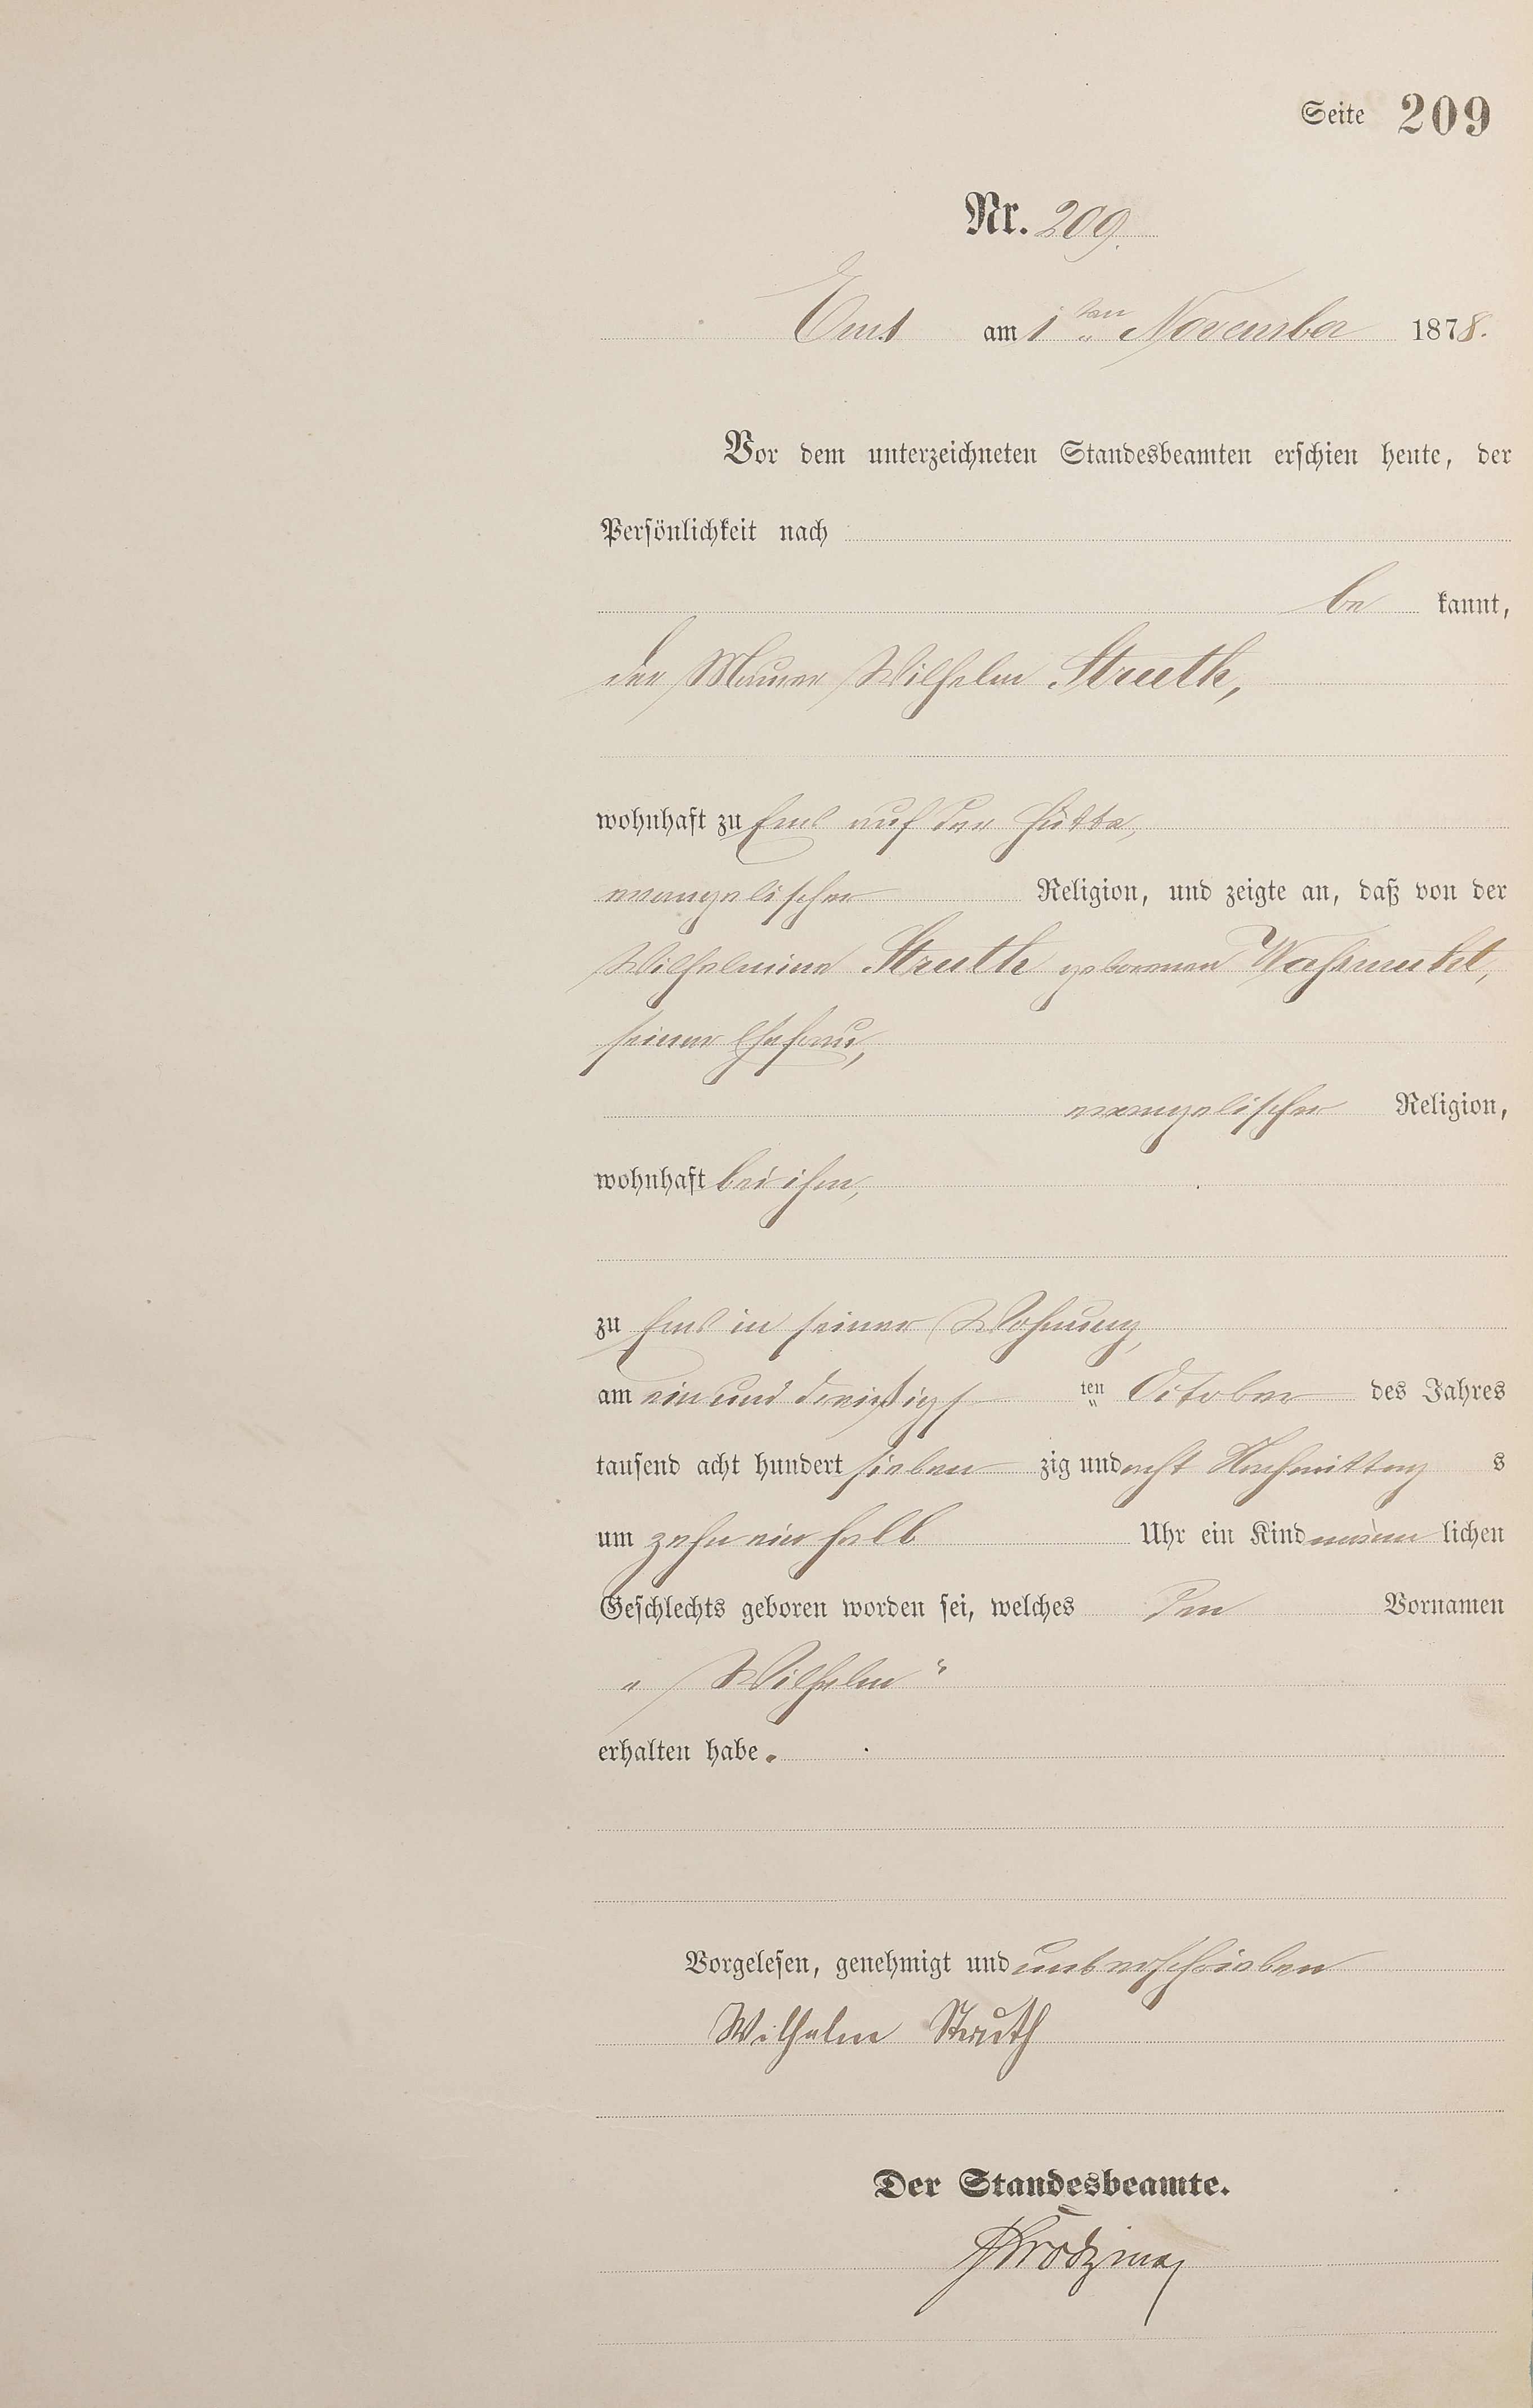 Seite 209
Nr. 209.
Ems am 1 ten November 1878.
Vor dem unterzeichneten Standesbeamten erschien heute, der
Persönlichkeit nach
be kannt,
der Maurer Wilhelm Struth,
wohnhaft zu Ems auf der Hütte,
evangelischer Religion, und zeigte an, daß von der
Wilhelmine Struth geborenen
seiner Ehefrau,
evangelischer Religion,
wohnhaft bei ihm,
zu Ems in seiner Wohnung,
am ein und dreißigst ten October des Jahres
tausend acht hundert sieben zig und acht Nachmittag s
um zehn ein halb Uhr ein Kind männ lichen
Geschlechts geboren worden sei, welches den Vornamen
„ Wilhelm “
erhalten habe.
Vorgelesen, genehmigt und unterschrieben
Wilhelm Struth
Der Standesbeamte.